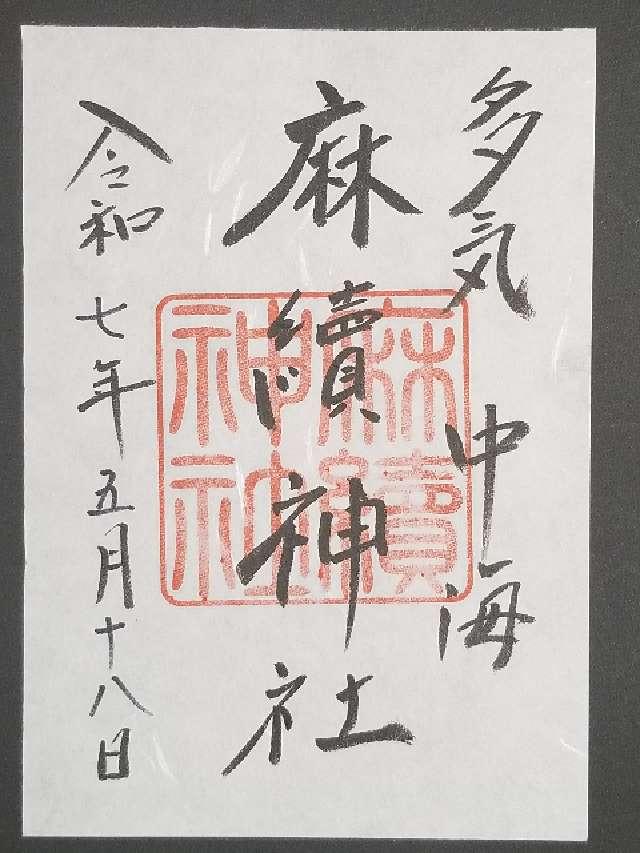 多気 中海
麻續神社
令和七年五月十八日
麻續
神社